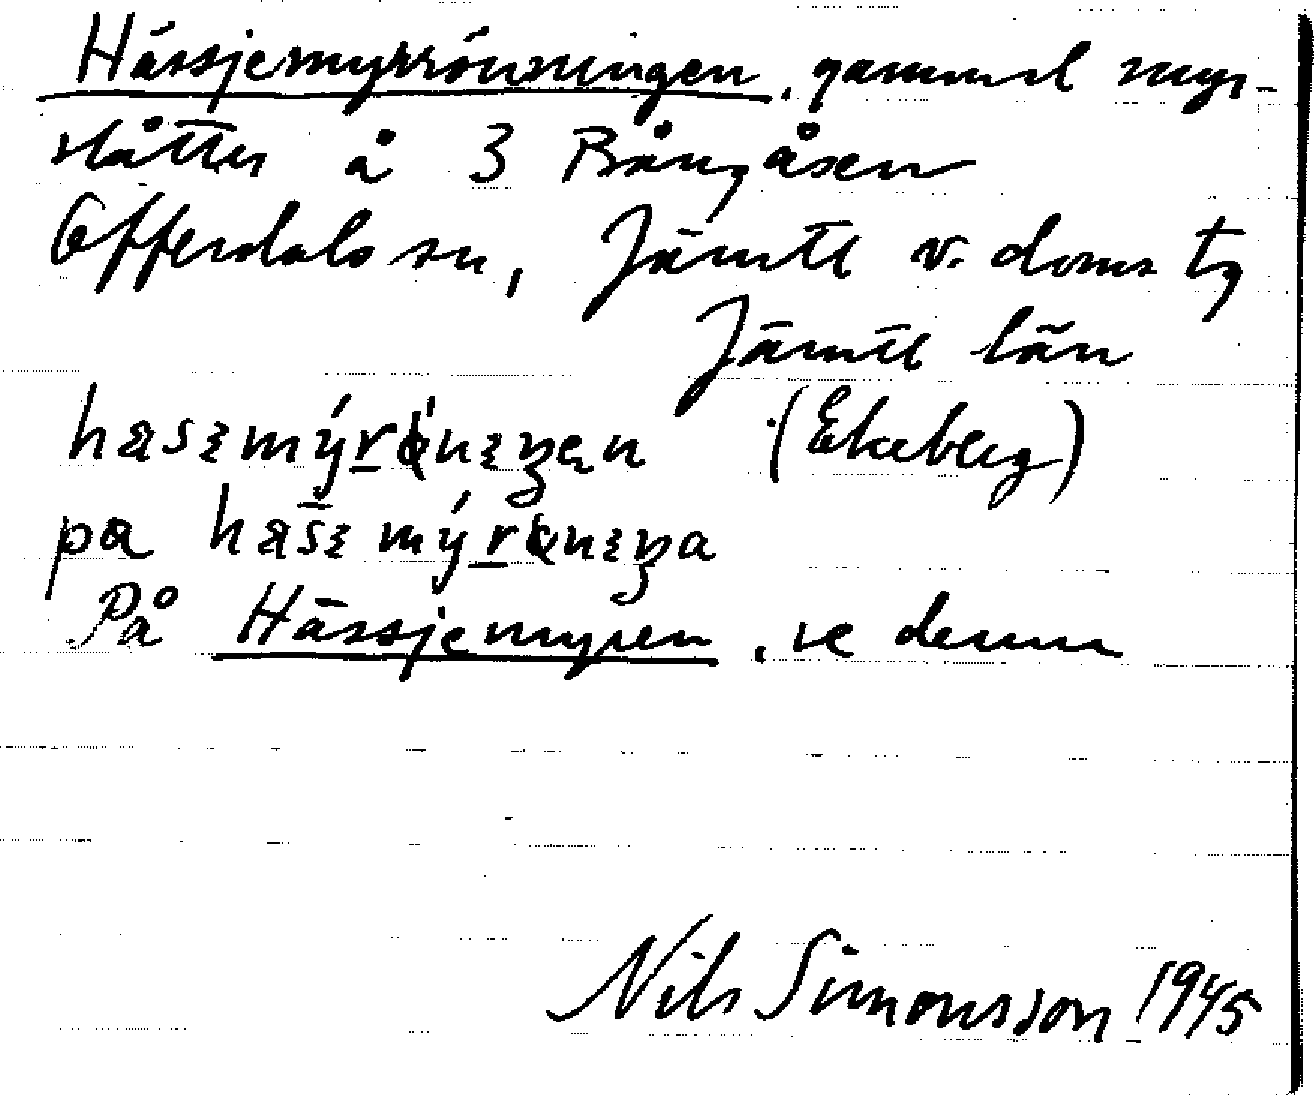 Hässjemyrrönningen, gammal myr-
slåtter å 3 Rångåsen
Offerdals sn, Jämtl v. doms tg
Jämtl län
(Ekeberg)
pa
På Hässjemyren, se denna
Nils Simonsson 1945